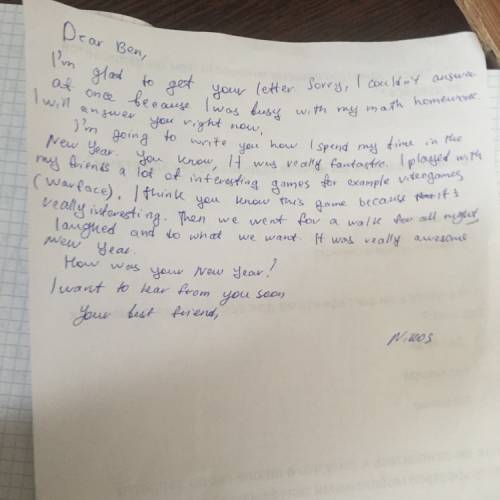 Dear Ben,
I'm glad to get your letter. Sorry, I couldn't answer
at once because I was busy with my math homework.
I will answer you right now,
I'm going to write you how I spend my time in the
New Year. You know, It was really fantastic. I played with
my friends a lot of interesting games for example videogames
(Warface), I think you know this game because it's
really interesting. Then we went for a walk for all night,
laughed and do what we want. It was really awesome
New Year.
How was your New Year?
I want to hear from you soon
Your best friend,